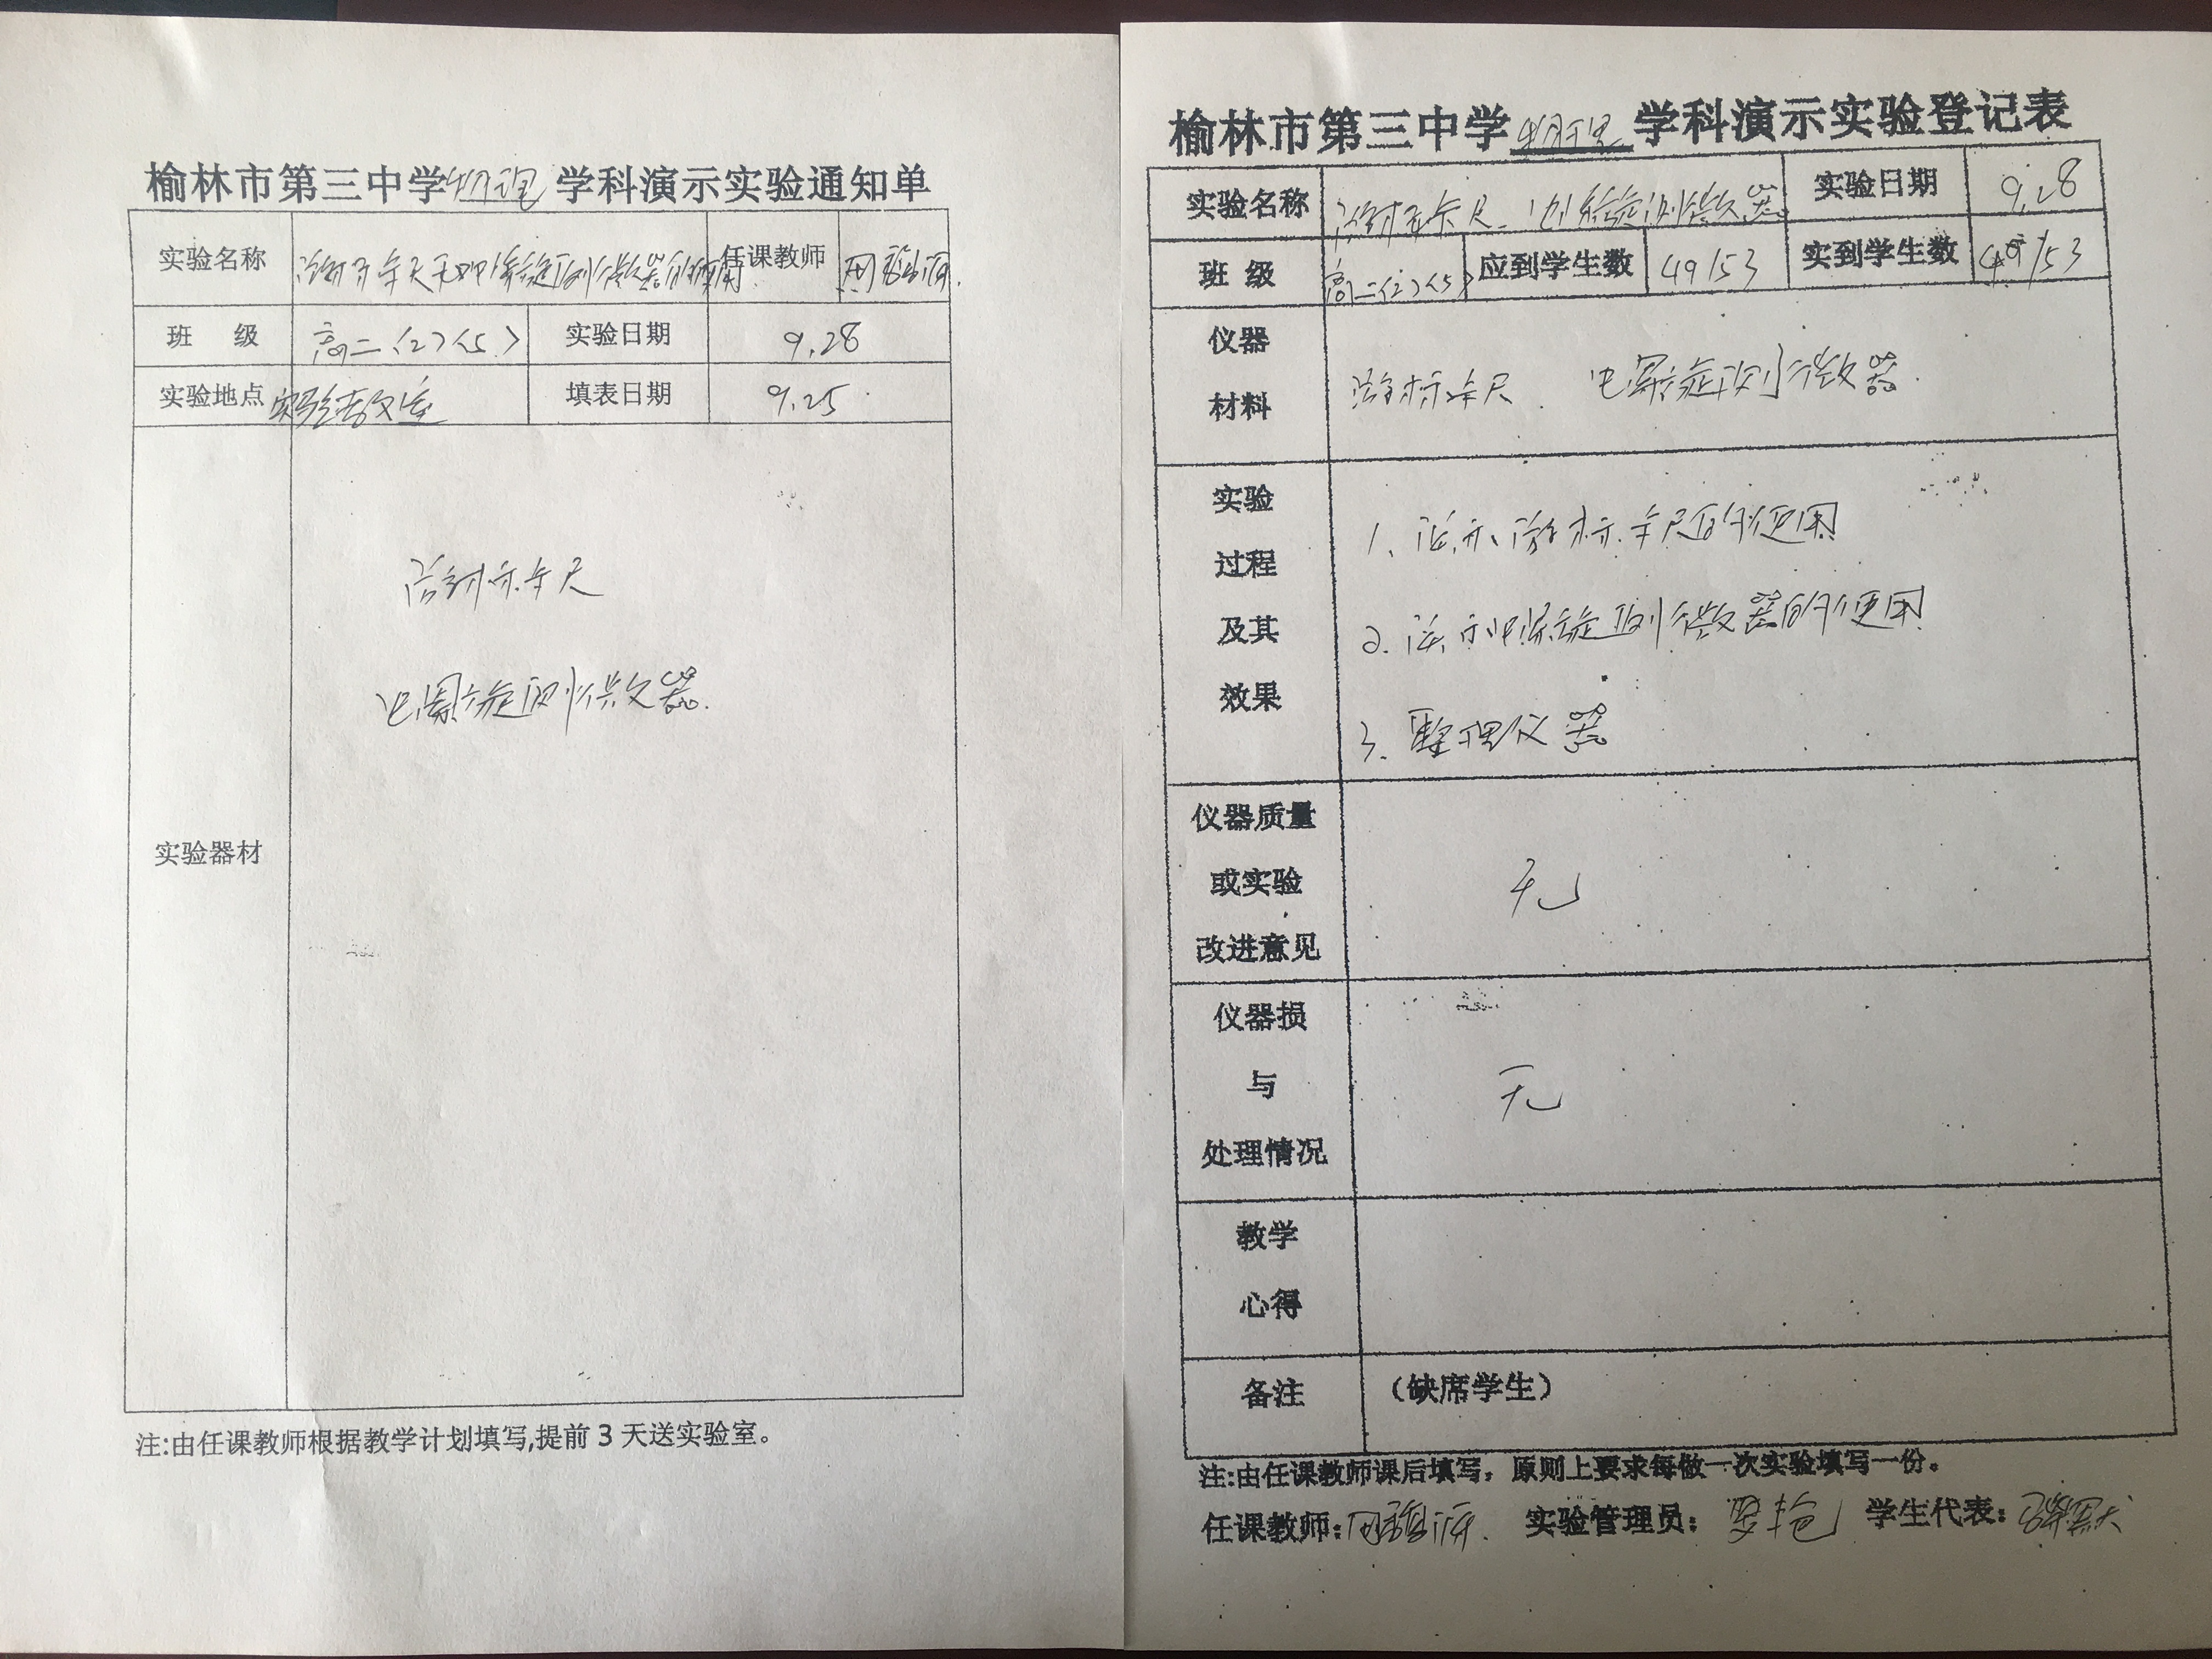 榆林市第三中学物理学科演示实验通知单
实验名称 游标卡尺和螺旋测微器的使用 任课教师
班 级 高二(2)(5) 实验日期 9.28
实验地点 实验室 填表日期 9.25
实验器材
游标卡尺
螺旋测微器.
注:由任课教师根据教学计划填写,提前3天送实验室。
榆林市第三中学物理学科演示实验登记表
实验名称 游标卡尺、螺旋测微器 实验日期 9.28
班 级 高二(2)(5) 应到学生数 49/53 实到学生数 49/53
仪器
材料
游标卡尺. 螺旋测微器.
实验
过程
及其
效果
1、演示游标卡尺的使用
2. 演示螺旋测微器的使用
3. 整理仪器
仪器质量
或实验
改进意见
无
仪器损
与
处理情况
无
教学
心得
备注 (缺席学生)
注:由任课教师课后填写,原则上要求每做一次实验填写一份。
任课教师: 实验管理员: 学生代表: